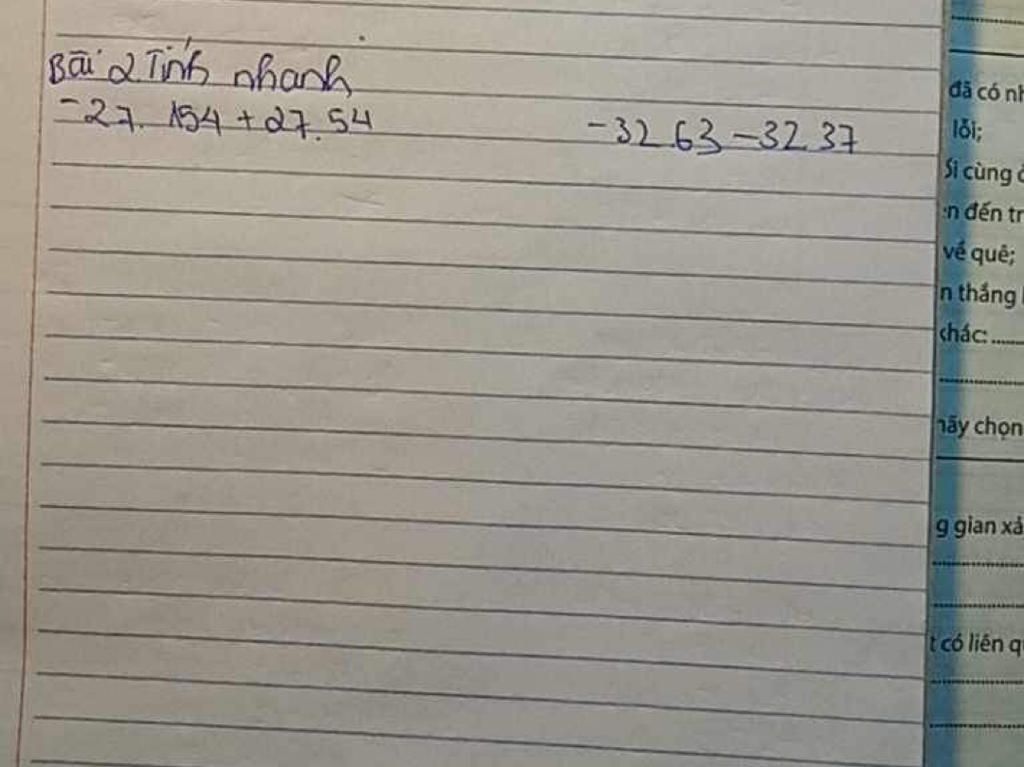 Bài 2 Tính nhanh
-27. 154 + 27.54
-32.63 - 32.37
đã có nh
lỗi;
Si cùng
n đến tr
về quê;
n thắng
khác: ......
hãy chọn
g gian xả
t có liên q